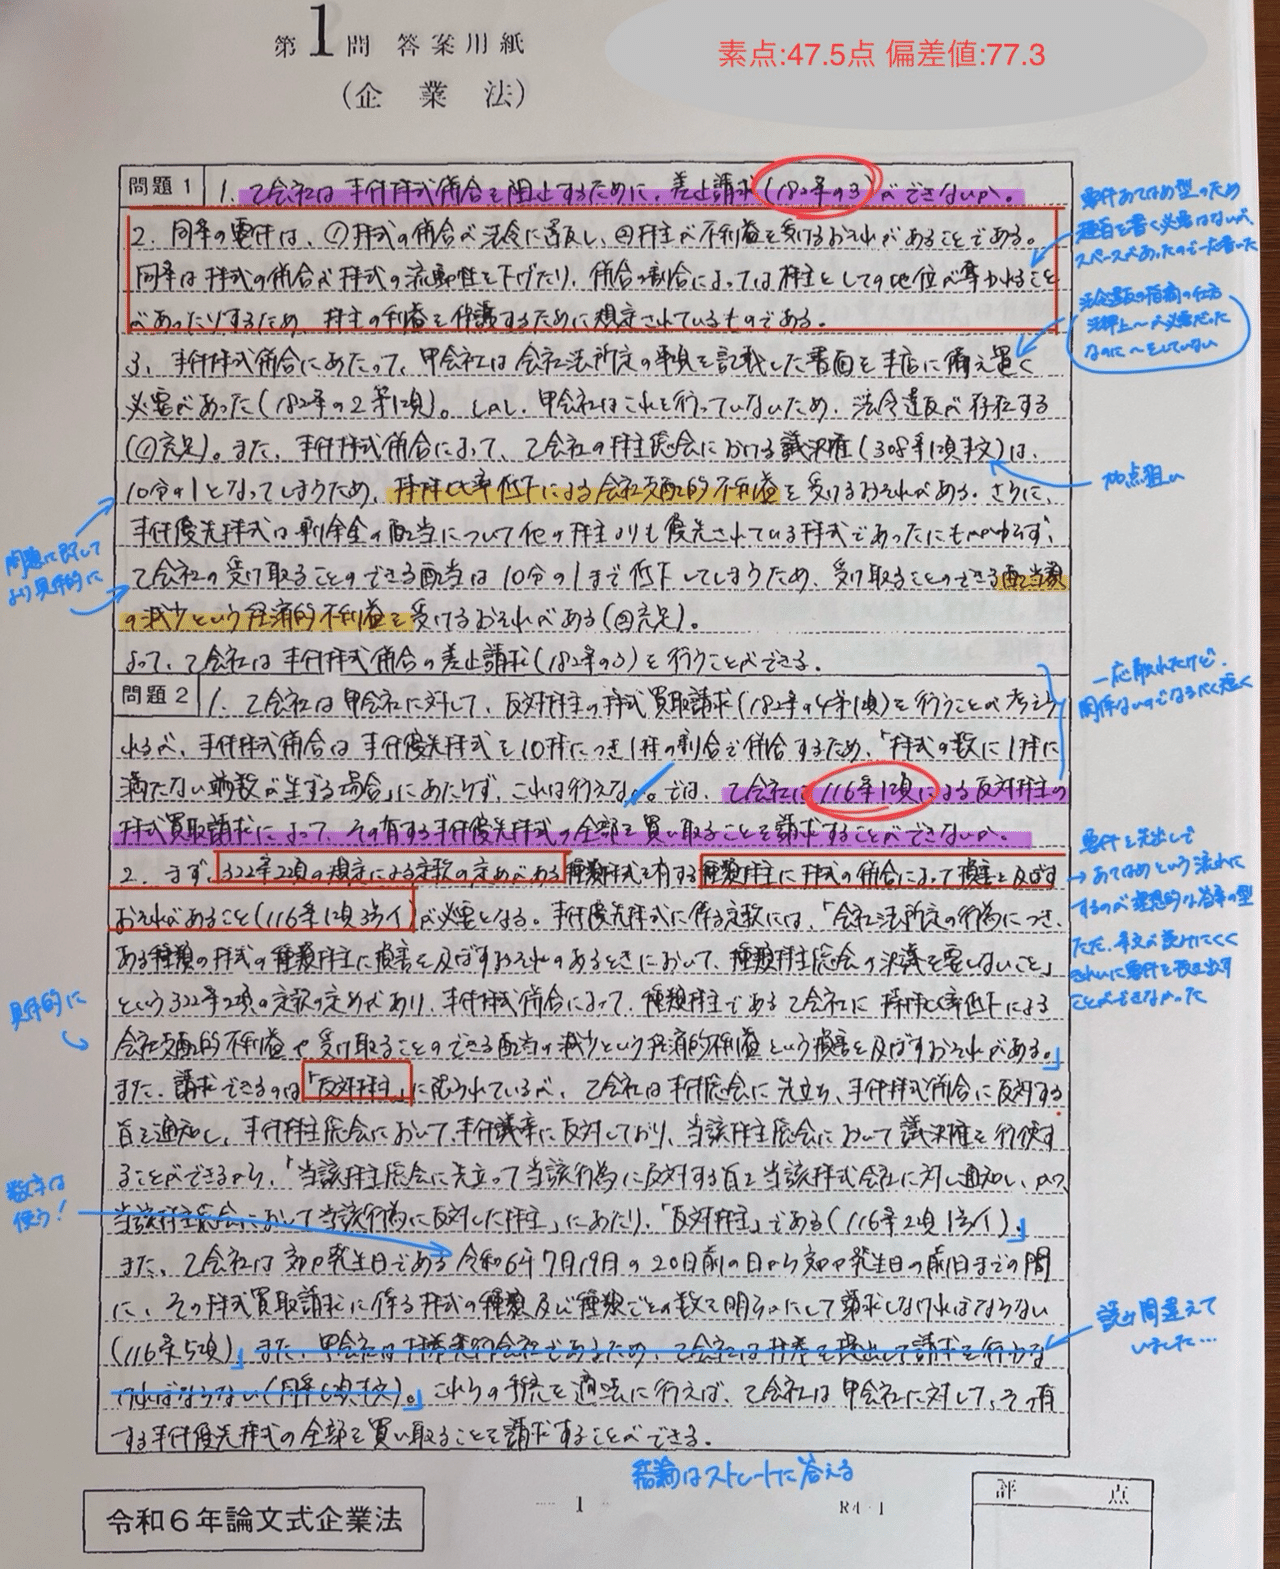 第1問 答案用紙
(企業法)
素点:47.5点 偏差値:77.3
問題1
1. 乙会社は本件株式併合を阻止するために、差止請求(182条の3)ができないか。
2. 同条の要件は、①株式の併合が法令に違反し、②株主が不利益を受けるおそれがあることである。
同条は株式の併合が株式の流動性を下げたり、併合の割合によっては株主としての地位が奪われること
があったりするため、株主の利益を保護するために規定されているものである。
3. 本件株式併合にあたって、甲会社は会社法所定の事項を記載した書面を本店に備え置く
必要があった(182条の2第1項)。しかし、甲会社はこれを行っていないため、法令違反が存在する
(①充足)。また、本件株式併合によって、乙会社の株主総会における議決権(308条1項本文)は、
10分の1となってしまうため、持株比率低下による会社支配的不利益を受けるおそれがある。さらに、
本件優先株式は剰余金の配当について他の株主よりも優先されている株式であったにもかかわらず、
乙会社の受け取ることのできる配当は10分の1まで低下してしまうため、受け取ることのできる配当額
の減少という経済的不利益を受けるおそれがある(②充足)。
よって、乙会社は本件株式併合の差止請求(182条の3)を行うことができる。
問題2
1. 乙会社は甲会社に対して、反対株主の株式買取請求(182条の4第1項)を行うことが考えら
れるが、本件株式併合は本件優先株式を10株につき1株の割合で併合するため、「株式の数に1株に
満たない端数が生ずる場合」にあたらず、これは行えない。では、乙会社は116条1項による反対株主の
株式買取請求によって、その有する本件優先株式の全部を買い取ることを請求することができないか。
2. まず、322条2項の規定による定款の定めがある種類株式を有する種類株主に株式の併合によって損害を及ぼす
おそれがあること(116条1項3号イ)が必要となる。本件優先株式に係る定款には、「会社法所定の行為につき、
ある種類の株式の種類株主に損害を及ぼすおそれのあるときにおいて、種類株主総会の決議を要しないこと」
という322条2項の定款の定めがあり、本件株式併合によって、種類株主である乙会社に持株比率低下による
会社支配的不利益や受け取ることのできる配当の減少という経済的不利益という損害を及ぼすおそれがある。
また、請求できるのは「反対株主」に限られているが、乙会社は本件総会に先立ち、本件株式併合に反対する
旨を通知し、本件株主総会において、本件議案に反対しており、当該株主総会において議決権を行使す
ることができるから、「当該株主総会に先立って当該行為に反対する旨を当該株式会社に対し通知し、かつ、
当該株主総会において当該行為に反対した株主」にあたり、「反対株主」である(116条2項1号イ)。
また、乙会社は効力発生日である令和6年7月19日の20日前の日から効力発生日の前日までの間
に、その株式買取請求に係る株式の種類及び種類ごとの数を明らかにして請求しなければならない
(116条5項)。また、甲会社は株券発行会社であるため、乙会社は株券を提出して請求を行わな
ければならない(同条6項本文)。これらの手続を適法に行えば、乙会社は甲会社に対して、その有
する本件優先株式の全部を買い取ることを請求することができる。
要件あてはめ型のため
趣旨を書く必要はないが、
スペースがあったので一応書いた
法令違反の指摘の仕方
法律上~が必要だった
なのに~をしていない
加点狙い
問題に即して
より具体的に
一応触れたけど、
関係ないのでなるべく短く
要件を先出しで
あてはめという流れに
するのが理想的な答案の型
ただ、条文が読みにくく
きれいに要件を抜き出す
ことができなかった
具体的に
数字は
使う!
読み間違えて
いました…
結論はストレートに答える
1
R4-1
評 点
令和6年論文式企業法